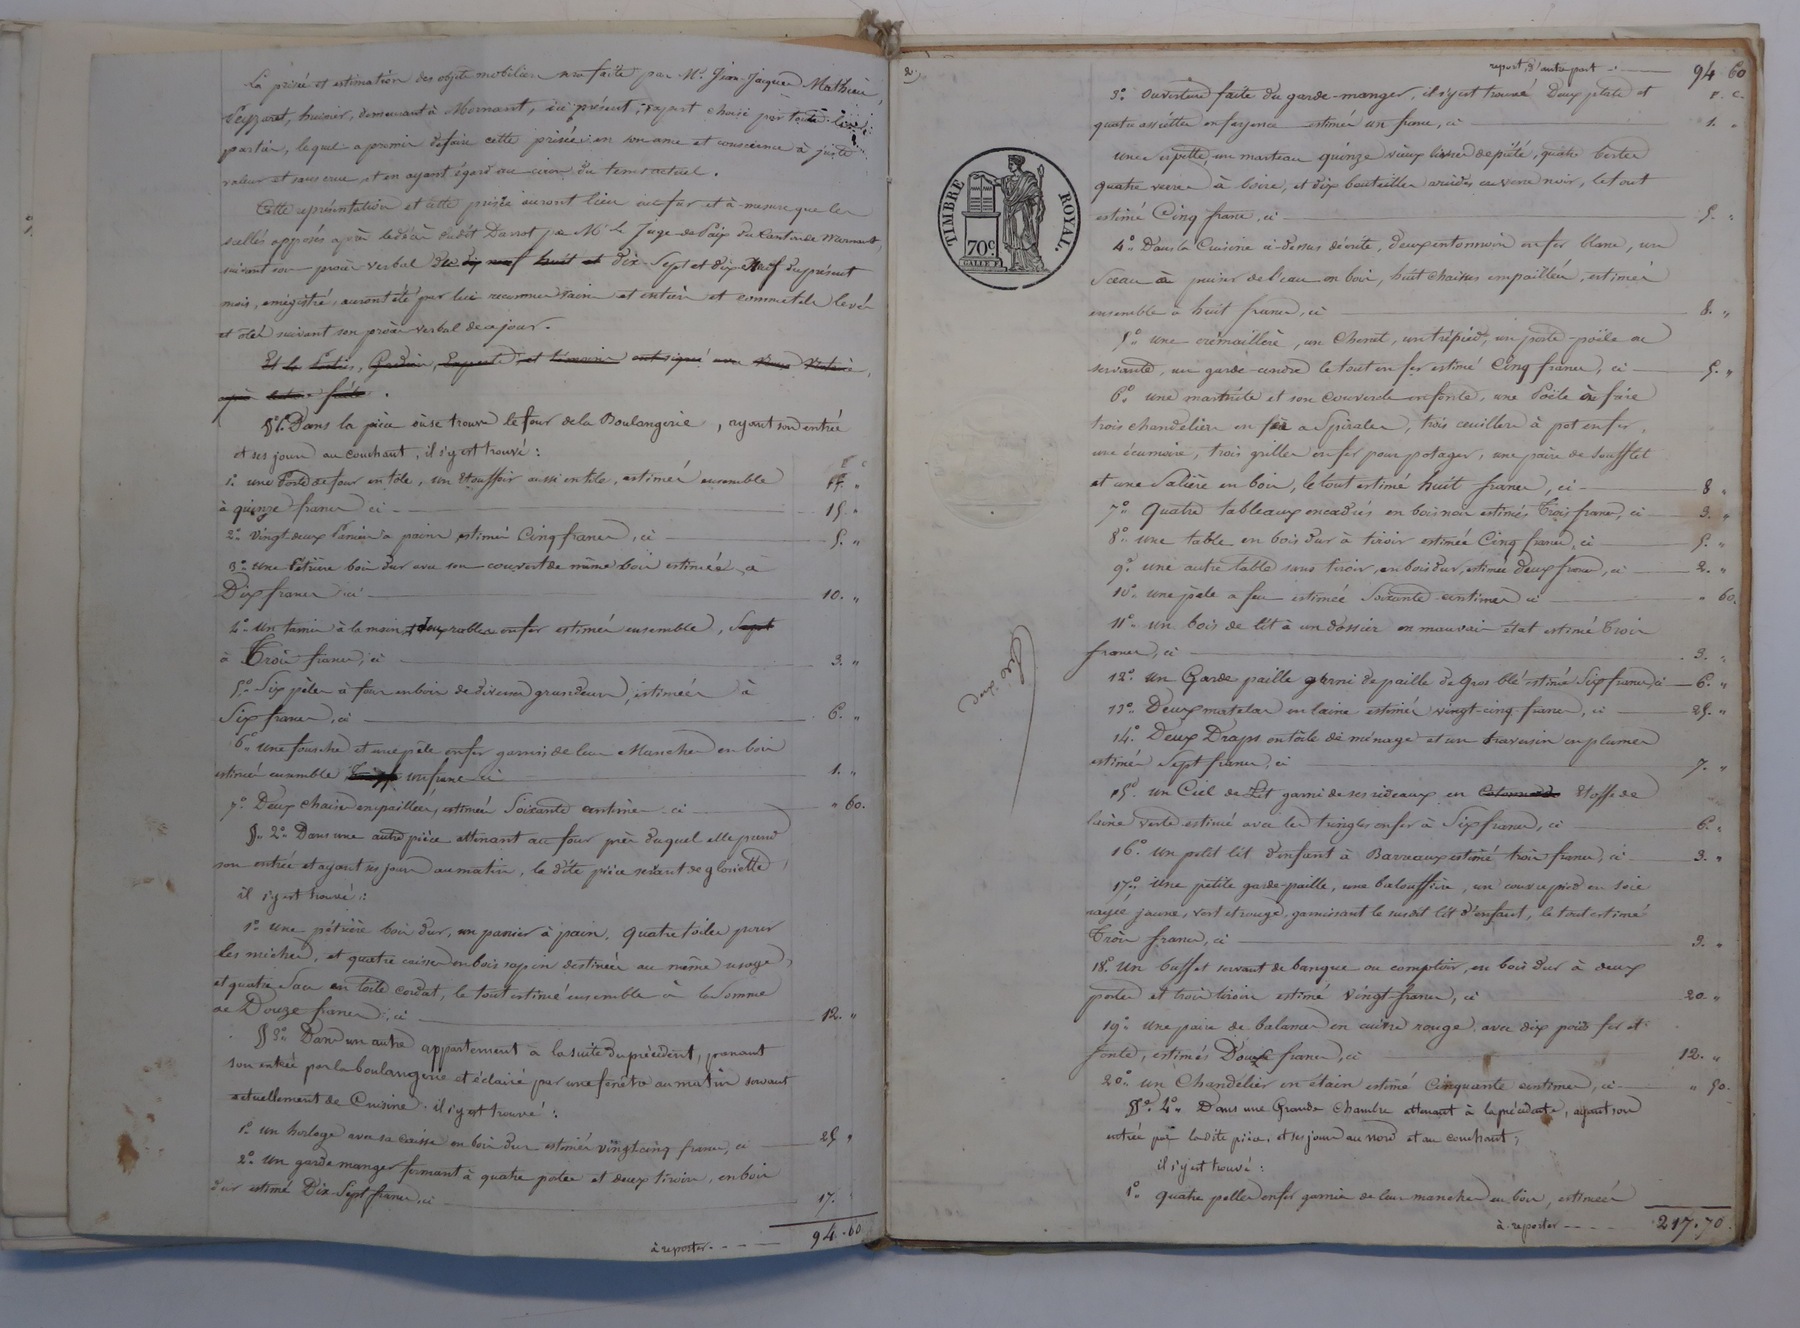 La prisée et estimation des objets mobiliers sera faite par Mr. Jean-Jacques Mathieu
Peyzaret, huissier, demeurant à Mornant, ici présent, ayant choisi par toutes les
parties, lequel a promis de faire cette prisée en son ame et conscience à juste
valeur et sans crue, et en ayant égard au cours du tems actuel.
Cette représentation et cette prisée auront lieu au fur et à mesure que les
scellés apposés après le décès dudit Darrot par Mr Le Juge de Paix du Canton de Mornant,
suivant son procès verbal du dix neuf huit et dix-Sept et dix Neuf du présent
mois, enregistré, auront été par lui reconnus sains et entiers et comme tels levés
et ôtés suivant son procès verbal de ce jour.
Et les Parties, Gardien, Expert et témoins ont signé avec Nous Notaires,
après lecture faite.
§ 1°. Dans la pièce où se trouve le four de la Boulangerie, ayant son entrée
et ses jours au couchant, il s'y est trouvé :
F C
1°. une Porte de four en tôle, un Etouffoir aussi en tôle, estimés ensemble
à quinze francs ci 15. "
2°. Vingt-deux Paniers à pains estimés Cinq francs, ci 5. "
3°. une Pétrière bois dur avec son couvert de même bois estimée à
Dix francs ci 10. "
4°. Un tamis à la main, deux rables en fer estimés ensemble, Sept
à Trois francs, ci 3. "
5°. Six pèles à four en bois de diverses grandeurs, estimées à
Six francs, ci 6. "
6°. Une fourche et une pèle en fer garnis de leurs Manches en bois
estimés ensemble un franc ci 1. "
7°. Deux chaises empaillées, estimées Soixante centimes ci " 60.
§. 2°. Dans une autre pièce attenant au four près duquel elle prend
son entrée et ayant ses jours au matin, la dite pièce servant de gloriette,
il s'y est trouvé :
1°. Une pétrière bois dur, un panier à pain, Quatre toiles pour
les miches, et quatre caisses en bois sapin destinées au même usage,
et quatre Sacs en toile cordat, le tout estimé ensemble à la Somme
de Douze francs, ci 12. "
§ 3°. Dans un autre appartement à la suite du précédent, prenant
son entrée par la boulangerie et éclairé par une fenêtre au matin servant
actuellement de Cuisine, il s'y est trouvé :
1°. Un horloge avec sa caisse en bois dur estimée vingt cinq francs, ci 25 "
2°. Un garde manger fermant à quatre portes et deux tiroirs, en bois
dur estimé Dix-Sept francs, ci 17.
à reporter 94. 60
2
report d'autre part 94 60
F. C.
3°. Ouverture faite du garde-manger, il s'y est trouvé Deux plats et
quatre assiettes en fayence estimés un franc, ci 1. "
une un marteau quinze vieux livres de piété, quatre
quatre verres à boire, et dix bouteilles vuides en verre noir, le tout
estimé Cinq francs, ci 5. "
4°. Dans la Cuisine ci-dessus décrite, deux entonnoirs en fer blanc, un
Sceau à puiser de l'eau en bois, huit chaises empaillées, estimés
ensemble à huit francs, ci 8. "
5°. Une crémaillère, un Chenet, un trépied, un porte-poêle ou
servante, un garde-cendre le tout en fer estimé Cinq francs, ci 5. "
6°. Une marmite et son couvercle en fonte, une Poële à frire
trois chandeliers en fer à Spirales, trois cuillers à pot en fer,
une écumoire, trois grilles en fer pour potager, une paire de Soufflet
et une Salière en bois, le tout estimé huit francs, ci 8 "
7°. Quatre tableaux encadrés en bois noir estimés Trois francs, ci 3. "
8°. une table en bois dur à tiroir estimée Cinq francs, ci 5. "
9°. une autre table sans tiroir, en bois dur, estimée Deux francs, ci 2. "
10°. une pèle à feu estimée Soixante centimes ci " 60.
11°. Un bois de lit à un dossier en mauvais état estimé Trois
francs, ci 3. "
12°. Un Garde paille garni de paille de Gros blé estimé Six francs, ci 6. "
13°. Deux matelas en laine estimés vingt-cinq francs, ci 25. "
14°. Deux Draps en toile de ménage et un traversin en plumes
estimés Sept francs, ci 7. "
15°. Un Ciel de Lit garni de ses rideaux en Cotonnade Etoffe de
laine verte estimé avec les tringles en fer à Six francs, ci 6. "
16°. Un petit lit d'enfant à Barreaux estimé trois francs, ci 3. "
17°. Une petite garde-paille, une balouffière, un couvrepied en soie
rayée jaune, vert et rouge, garnissant le susdit lit d'enfant, le tout estimé
Trois francs, ci 3. "
18°. Un buffet servant de banque ou comptoir, en bois dur à deux
portes et trois tiroirs estimé Vingt francs, ci 20. "
19°. Une paire de balances en cuivre rouge, avec dix poids fer et
fonte, estimés Douze francs, ci 12. "
20°. un Chandélier en étain estimé Cinquante centimes, ci " 50.
§. 4°. Dans une Grande Chambre attenant à la précédente, ayant son
entrée par ladite pièce, et ses jours au nord et au couchant,
il s'y est trouvé :
1°. Quatre pelles en fer garnies de leurs manches en bois, estimées
à reporter 217. 70
TIMBRE ROYAL.
70 c.